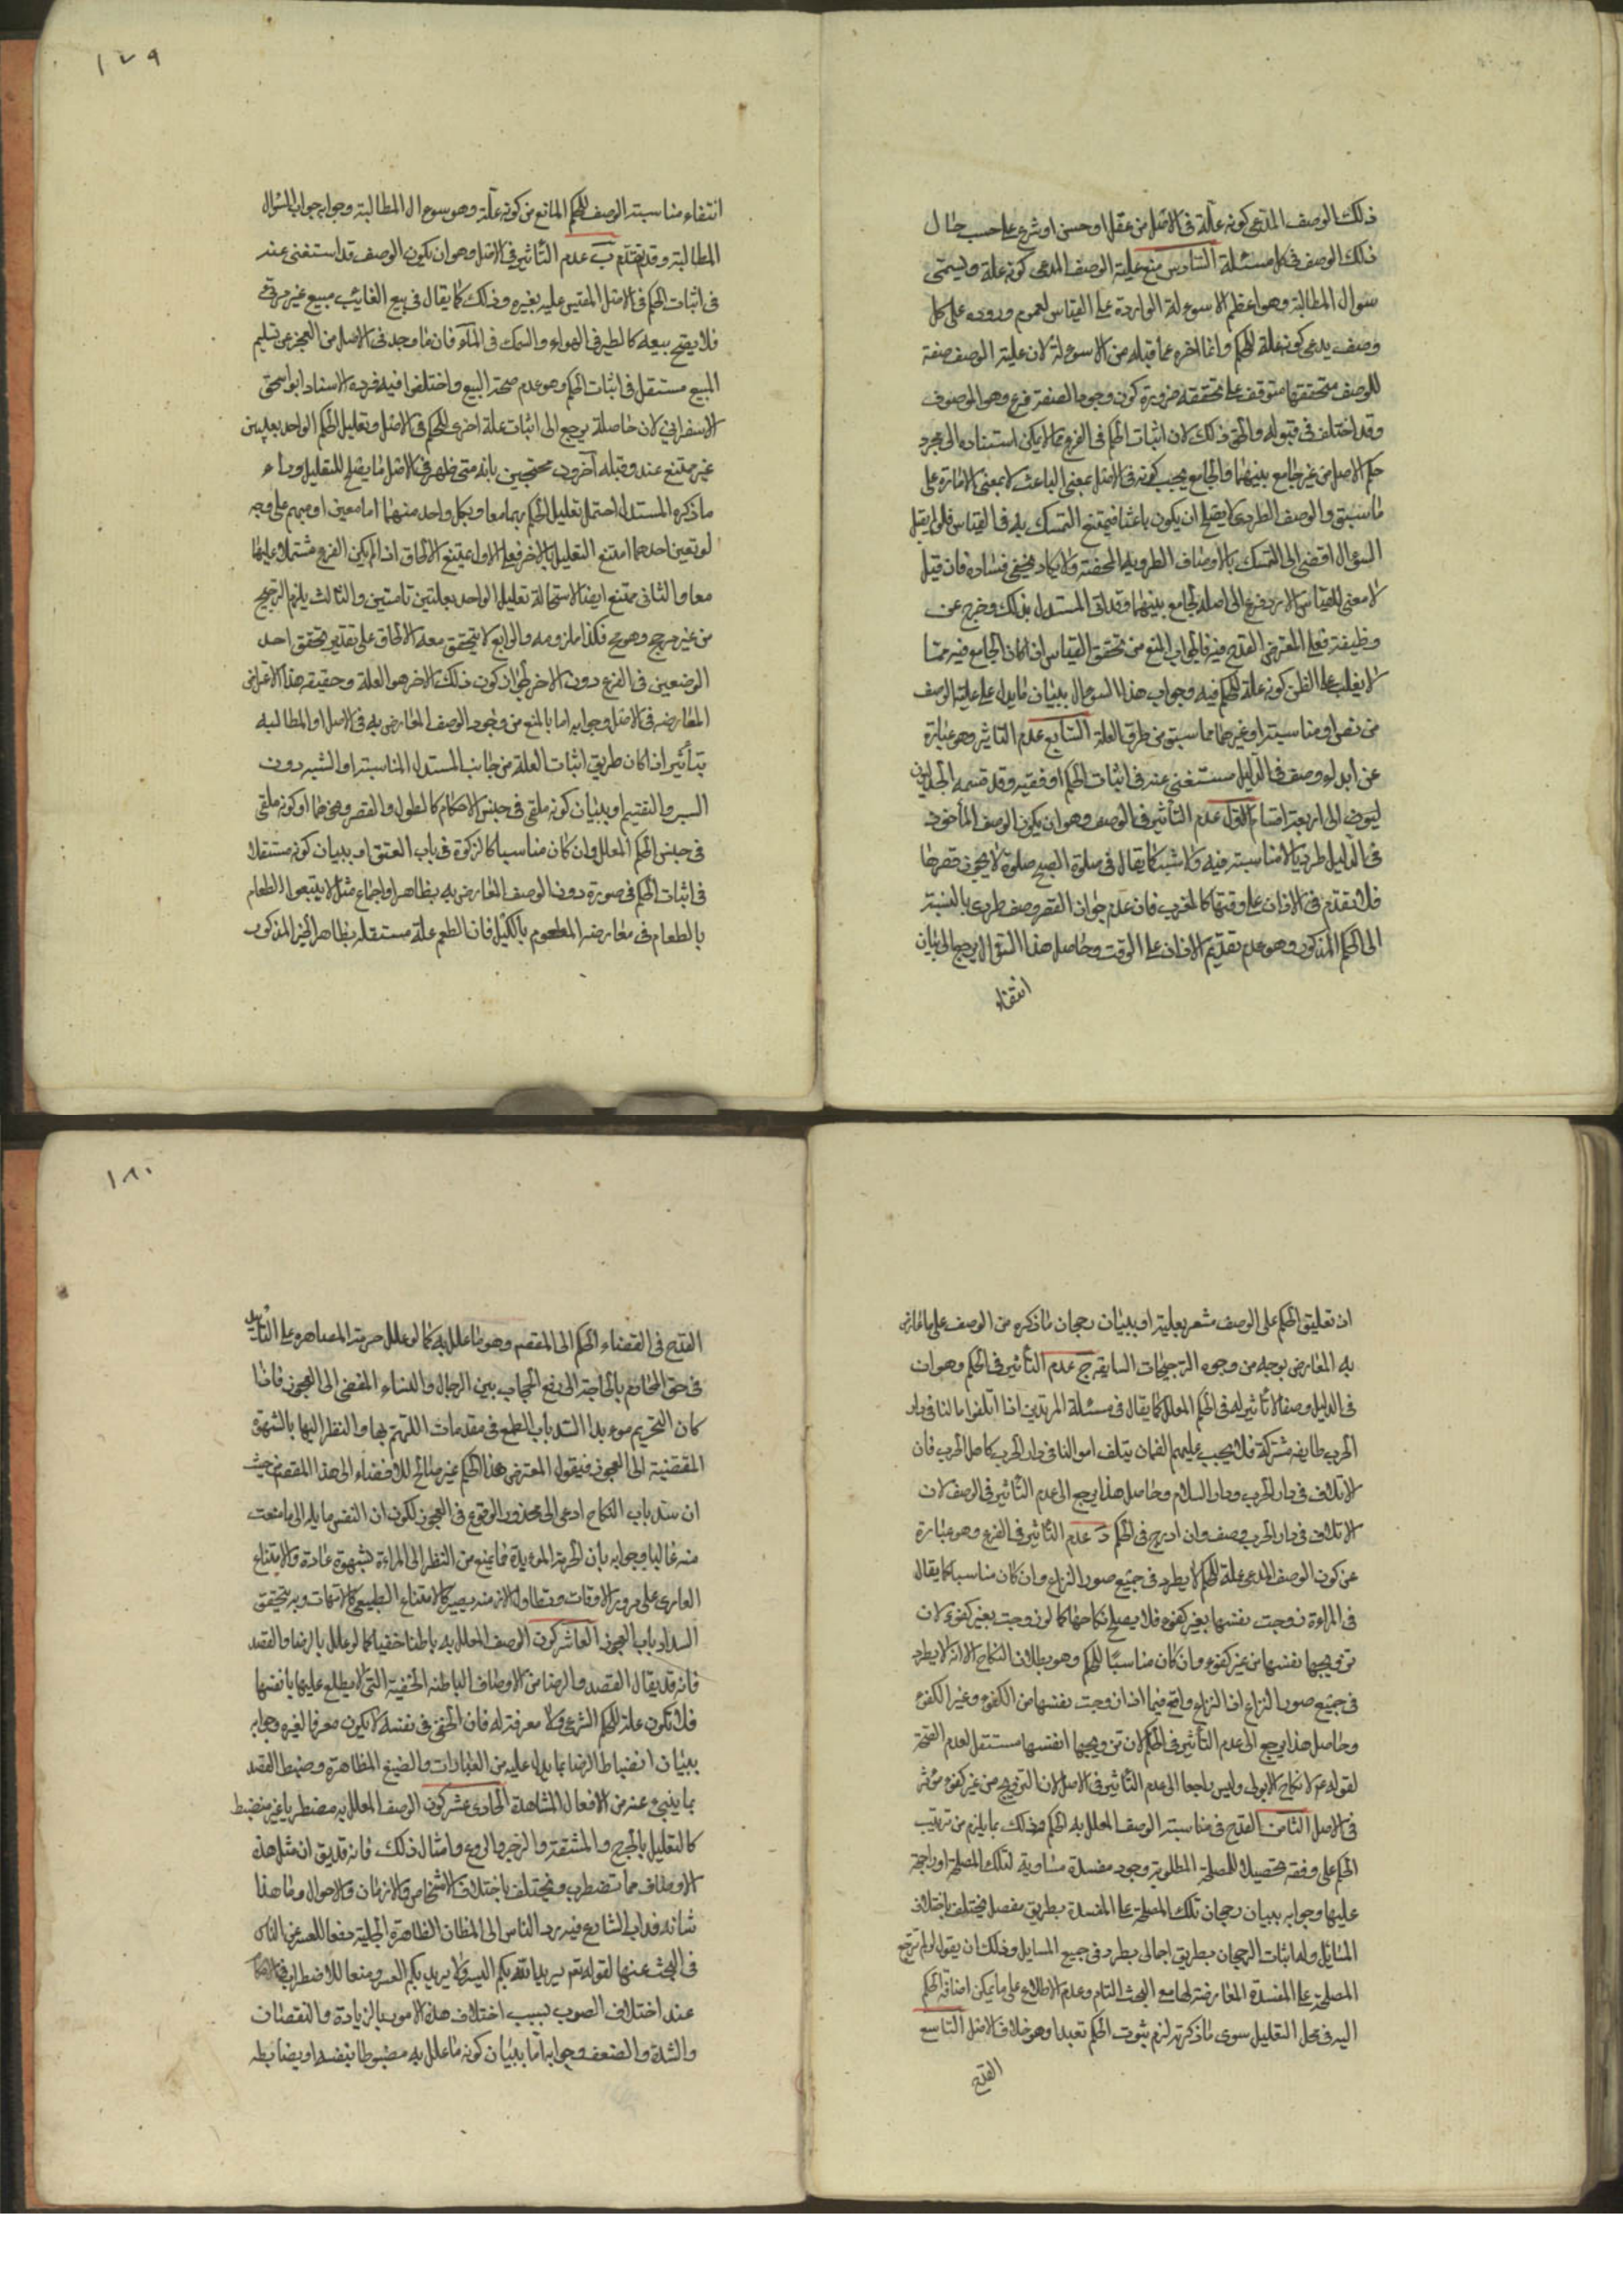 ذلك الوصف المدعى كونه علة فى الاصل من عقل او حسن او شرع على حسب حال
ذلك الوصف فى كل مسئلة السادس منع علية الوصف المدعى كونه علة ويسمى
سوال المطالبة وهو اعظم الاسوءلة الواردة على القياس لعموم وروده على كل
وصف يدعى كونه علة للحكم وانما اخره عما قبله من الاسوءلة لان علية الوصف صفة
للوصف متحققها متوقف على تحققه ضرورة كون وجود الصفة فرع وهو الموصوف
وقد اختلف فى قبوله والحق ذلك لان اثبات الحكم فى الفرع مما لا يمكن استناده الى مجرد
حكم الاصل من غير جامع بينهما والجامع يجب كونه فى الاصل بمعنى الباعث لا بمعنى الامارة على
ما سبق والوصف الطردى لا يصلح ان يكون باعثا فيمتنع التمسك به فى القياس فلو لم يقبل
السوءال افضى الى التمسك بالاوصاف الطردية المحضة ولا يكاد يخفى فساده فان قيل
لا معنى للقياس الا رد فرع الى اصله بجامع بينهما وقد اتى المستدل بذلك وخرج عن
وظيفته فعلى المعترض القدح فيه فالجواب المنع من تحقق القياس اذا كان الجامع فيه مما
لا يغلب على الظن كونه علة للحكم فيه وجواب هذا السوءال ببيان ما يدل على علية الوصف
من نص او مناسبة او غيرهما مما سبق من طرق العلة السابع عدم التاثير وهو عبارة
عن ابداء وصف فى الدليل مستغنى عنه فى اثبات الحكم او نفيه وقد قسمه الجدليون
الى اربعة اقسام الاول عدم التأثير فى الوصف وهو ان يكون الوصف المأخوذ
فى الدليل طرديا لا مناسبة فيه ولا شبه كما يقال فى صلوة الصبح صلوة لا يجوز قصرها
فلا تقدم فى الاذان على وقتها كالمغرب فان عدم جواز القصر وصف طردى بالنسبة
الى الحكم المذكور وهو عدم تقديم الاذان على الوقت وحاصل هذا السوءال يرجع الى بيان
انتفاء
١٧٩
انتفاء مناسبة الوصف للحكم المانع من كونه علة وهو سوءال المطالبة وجوابه جواب السوءال
المطالبة وقد تقدم ب عدم التأثير فى الاصل وهو ان يكون الوصف قد استغنى عنه
فى اثبات الحكم فى الاصل المقيس عليه بغيره وذلك كما يقال فى بيع الغائب مبيع غير مرئى
فلا يصح بيعه كالطير فى الهواء والسمك فى الماء فان ما وجد فى الاصل من العجز عن تسليم
المبيع مستقل فى اثبات الحكم وهو عدم صحة البيع واختلفوا فيه فرده الاستاد ابو اسحق
الاسفراينى لان حاصله يرجع الى اثبات علة اخرى للحكم فى الاصل وتعليل الحكم الواحد بعلتين
غير ممتنع عنده وقبله آخرون محتجين بانه متى ظهر فى الاصل ما يصلح للتعليل وراء
ما ذكره المستدل احتمل تعليل الحكم بهما معا وبكل واحد منهما اما معين او مبهم على وجه
لو تعين احدهما امتنع التعليل بالاخر فعلى الاول يمتنع الالحاق اذ لم يكن الفرع مشتملا عليهما
معا والثانى ممتنع ايضا لاستحالة تعليل الواحد بعلتين تامتين والثالث يلزم الترجيح
من غير مرجح وهو مح فكذا ملزومه والرابع لا يتحقق معه الالحاق على تقدير تحقق احد
الوضعين فى الفرع دون الاخر لجواز كون ذلك الاخر هو العلة وحقيقة هذا الاعتراض
المعارضه فى الاصل وجوابه اما بالمنع من وجود الوصف المعارض به فى الاصل او المطالبه
بتأثير اذا كان طريق اثبات العلة من جانب المستدل المناسبة او الشبه دون
السبر والتقسيم او ببيان كونه ملغى فى جنس الاحكام كالطول والقصر ونحوهما او كونه ملغى
فى جنس الحكم المعلل وان كان مناسبا كالذكورة فى باب العتق او ببيان كونه مستقلا
فى اثبات الحكم فى صورة دون الوصف المعارض به بظاهر او اجماع مثل لا تبيعوا الطعام
بالطعام فى معارضة المطعوم بالكيل فان الطعم علة مستقلة بظاهر الخبر المذكور
اذ تعليق الحكم على الوصف مشعر بعلية او ببيان رجحان ما ذكره من الوصف على ما عارض
به المعارض بوجه من وجوه الترجيحات السابقة ج عدم التأثير فى الحكم وهو ان
فى الدليل وصفا لا تأثير له فى الحكم المعلل كما يقال فى مسئلة المرتدين اذا اتلفوا ما لنا فى دار
الحرب طايفة مشركة فلا يجب عليهم الضمان بتلف اموالنا فى دار الحرب كاهل الحرب فان
الاتلاف فى دار الحرب ودار السلام وحاصل هذا يرجع الى عدم التأثير فى الوصف لان
الاتلاف فى دار الحرب وصف وان ادرج فى الحكم د عدم التأثير فى الفرع وهو عبارة
عن كون الوصف المدعى علة للحكم لا يطرد فى جميع صور النزاع وان كان مناسبا كما يقال
فى المراءة زوجت نفسها بغير كفوء فلا يصح نكاحها كما لو زوجت بغير كفوء لان
تزويجها نفسها من غير كفوء وان كان مناسبا للحكم وهو بطلان النكاح الا انه لا يطرد
فى جميع صور النزاع اذ النزاع واقع فيما اذا زوجت نفسها من الكفوء وغير الكفوء
وحاصل هذا يرجع الى عدم التأثير فى الحكم لان تزويجها نفسها مستقل لعدم الصحة
لقوله عم لا نكاح الا بولى وليس راجعا الى عدم التأثير فى الاصل لان التزويج من غير كفوء مؤثر
فى الاصل الثامن القدح فى مناسبة الوصف المعلل به للحكم وذلك بما يلزم من ترتيب
الحكم على وفقه تحصيلا للمصلحة المطلوبة وجود مفسدة مساوية لتلك المصلحة او راجحة
عليها وجوابه ببيان رجحان تلك المصلحة على المفسدة بطريق مفصل يختلف باختلاف
المسائل وله اثبات الرجحان بطريق اجمالى يطرد فى جميع المسايل وذلك ان يقول لو لم ترجح
المصلحة على المفسدة المعارضة لها مع البحث التام وعدم الاطلاع على ما يمكن اضافة الحكم
اليه فى محل التعليل سوى ما ذكرته لزم ثبوت الحكم تعبدا وهو خلاف الاصل التاسع
القدح
١٨٠
القدح فى افضاء الحكم الى المقصد وهو ما علل به كما لو علل حرمة المصاهره على التأبيد
فى حق المحارم بالحاجة الى رفع الحجاب بين الرجال والنساء المفضى الى الفجور فاذا
كان التحريم موءبدا انسد باب الطمع فى مقدمات الهم بها والنظر اليها بالشهوة
المفضية الى الفجور فيقول المعترض هذا الحكم غير صالح للافضاء الى هذا المقصد من حيث
ان سد باب النكاح ادعى الى محذور الوقوع فى الفجور لكون ان النفس مايله الى ما منعت
منه غالبا وجوابه بان الحرمة الموءبدة مما يمنع من النظر الى المراءة بشهوة عادة والامتناع
العادى على مرور الاوقات وتطاول الازمنه يصير كالامتناع الطبيعى كالامهات وبه يتحقق
انسداد باب الفجور العاشر كون الوصف المعلل به باطنا خفيا كما لو علل بالرضا والقصد
فانه قد يقال القصد والرضا من الاوصاف الباطنه الخفية التى لا يطلع عليها بانفسها
فلا تكون علة للحكم الشرعى ولا معرفة له فان الخفى فى نفسه لا يكون معرفا لغيره وجوابه
ببيان انضباط الرضا بما يدل عليه من العبارات والصيغ الظاهرة وضبط القصد
بما ينبىء عنه من الافعال المشاهدة الحادى عشر كون الوصف المعلل به مضطربا غير منضبط
كالتعليل بالحرج والمشقة والزجر والردع وامثال ذلك فانه قد يق ان مثل هذه
الاوصاف مما تضطرب وتختلف باختلاف الاشخاص والازمان والاحوال وما هذا
شانه فداب الشارع فيه رد الناس الى المظان الظاهرة الجلية دفعا للعسر عن الناس
فى البحث عنها لقوله تع يريد الله بكم اليسر ولا يريد بكم العسر ومنعا للاضطراب فى الاحكام
عند اختلاف الصور بسبب اختلاف هذه الامور بالزيادة والنقصان
والشدة والضعف وجوابه اما ببيان كونه ما علل به مضبوطا بنفسه او بضابطه